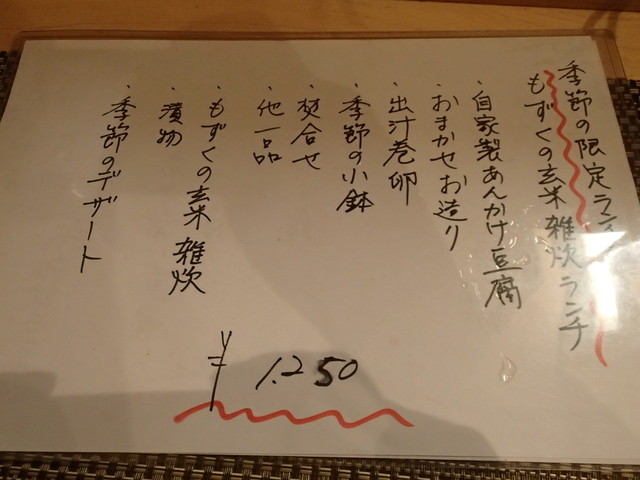 季節の限定ランチ
もずくの玄米雑炊ランチ
・自家製あんかけ豆腐
・おまかせお造り
・出汁巻卵
・季節の小鉢
・焚合せ
・他一品
・もずくの玄米雑炊
・漬物
・季節のデザート
¥1.250